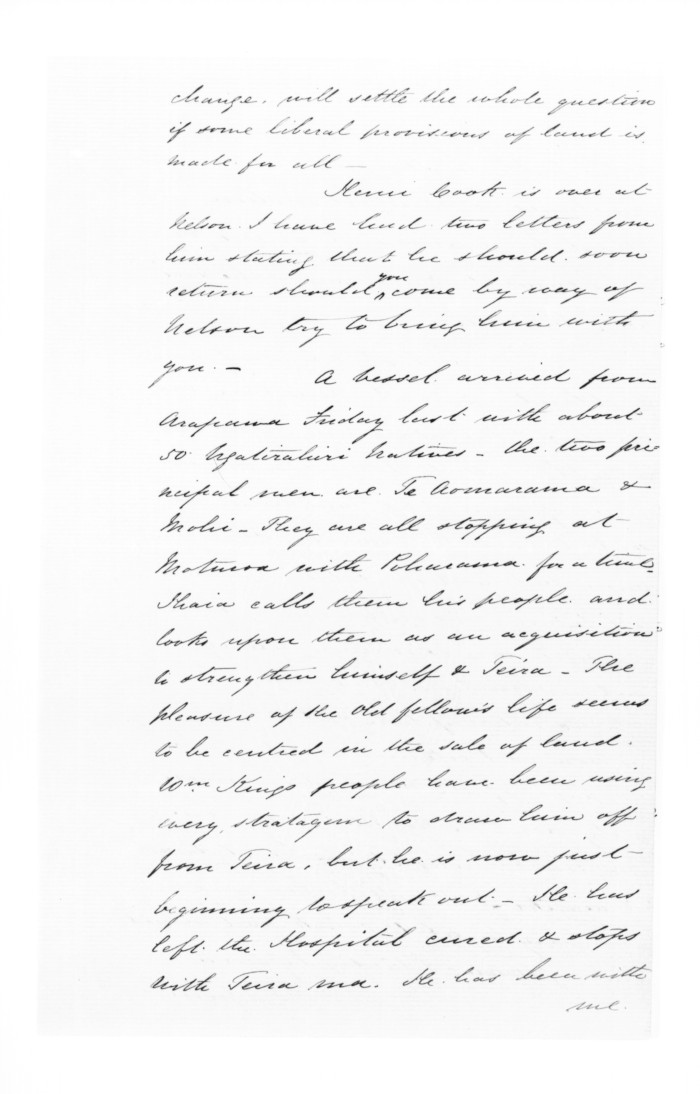 change. will settle the whole question
if some liberal provisions of land is
made for all —
Henri Cook is over at
Nelson. I have had two letters from
him stating that he should soon
return should you come by way of
Nelson try to bring him with
you. —
A vessel arrived from
Arapawa Friday last with about
50 Ngatirahiri Natives — the two pri
ncipal men are Te Aomarama &
Mohi — They are all stopping at
Moturoa with Poharama for a time
Ihaia calls them his people and
looks upon them as an acquisition
to strengthen himself & Teira — The
pleasure of the Old fellow's life seems
to be centred in the sale of land.
Wm Kings people have been using
every stratagem to draw him off
from Teira, but he is now just
beginning to speak out — He has
left the Hospital cured & stops
with Teira ma. He has been with
me.